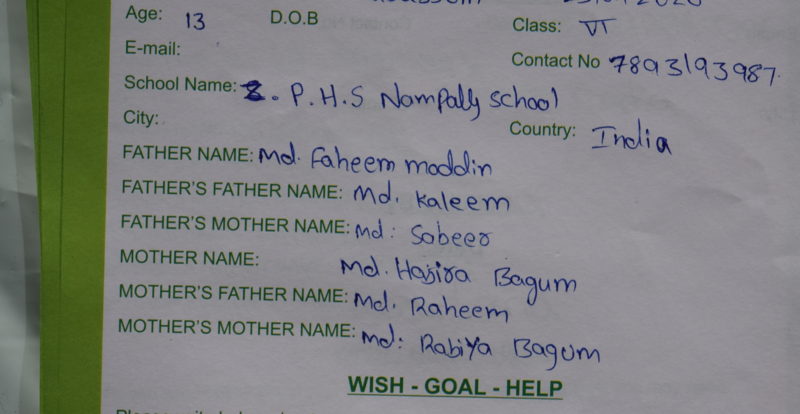 Age: 13 D.O.B Class: VI
E-mail: Contact No 7893193987
School Name: Z.P.H.S Nampally school
City: Country: India
FATHER NAME: Md. Faheem moddin
FATHER'S FATHER NAME: Md. Kaleem
FATHER'S MOTHER NAME: Md: Sabeer
MOTHER NAME: Md. Hajira Bagum
MOTHER'S FATHER NAME: Md. Raheem
MOTHER'S MOTHER NAME: Md: Rabiya Bagum
WISH - GOAL - HELP